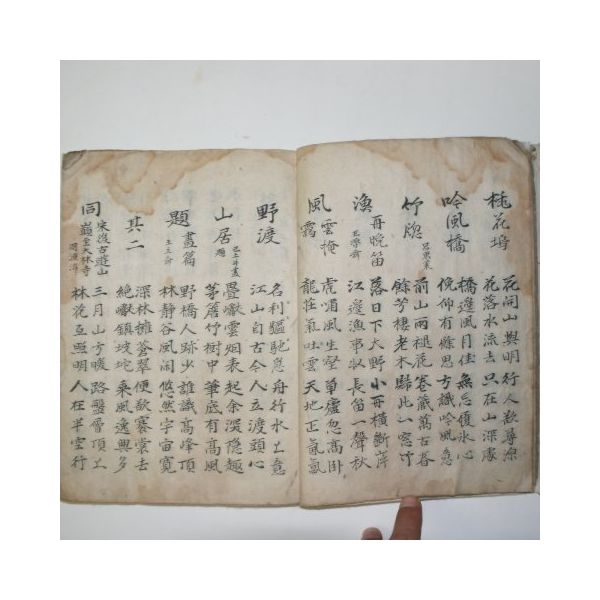 桃花塢
花開山與明 行人欲尋源
花落水流去 只在山深處
吟風橋
橋邊風月佳
俛仰有餘思 方識吟風意
竹牕 呂東萊
前山雨褪花 卷藏萬古春
餘芳棲老木 歸此一窓竹
漁舟晚笛
落日下大野 小舟橫斷岸
江邊漁事收 長笛一聲秋
風雲掩靄
虎嘯風生壑 草廬忽高臥
龍在氣吐雲 天地正氤氳
野渡
名利驅馳急 舟行水上意
江山自古今 人立渡頭心
山居
疊巘雲烟表 起余深隱趣
茅簷竹樹中 筆底有高風
題畫篇
野橋人跡少 誰識高峰頂
林靜谷風間 悠然宇宙寬
其二
深林擁蒼翠 便欲褰裳去
絶巘鎖坡坨 乘風逸興多
同宋復古遊山巔至大林寺 周濂溪
三月山方暖 路盤層頂上
林花互照明 人在半空行